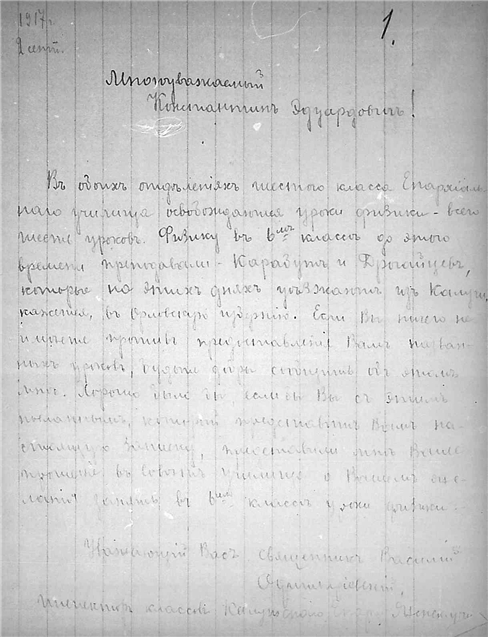 1917 г.
2 сент.
1.
Многоуважаемый
Константинъ Эдуардовичъ!
Въ обоихъ отдѣленіяхъ шестого класса Епархіаль-
наго училища освобождаются уроки физики - всего
шесть уроковъ. Физику въ 6мъ классѣ до этого
времени преподавали - Карабутъ и
которые на этихъ дняхъ уѣзжаютъ изъ Калуги,
кажется, въ Орловскую губернію. Если Вы ничего не
имѣете противъ предоставленія Вамъ назван-
ныхъ уроковъ, будьте добры сообщить объ этомъ
мнѣ. Хорошо было бы если бы Вы съ этимъ
посланнымъ, который представитъ Вамъ на-
стоящую записку, мнѣ Ваше
прошеніе въ совѣтъ училища о Вашемъ же-
ланіи занять въ 6мъ классѣ уроки физики.
Уважающій Васъ священникъ Василій
Инспекторъ классовъ Калужскаго